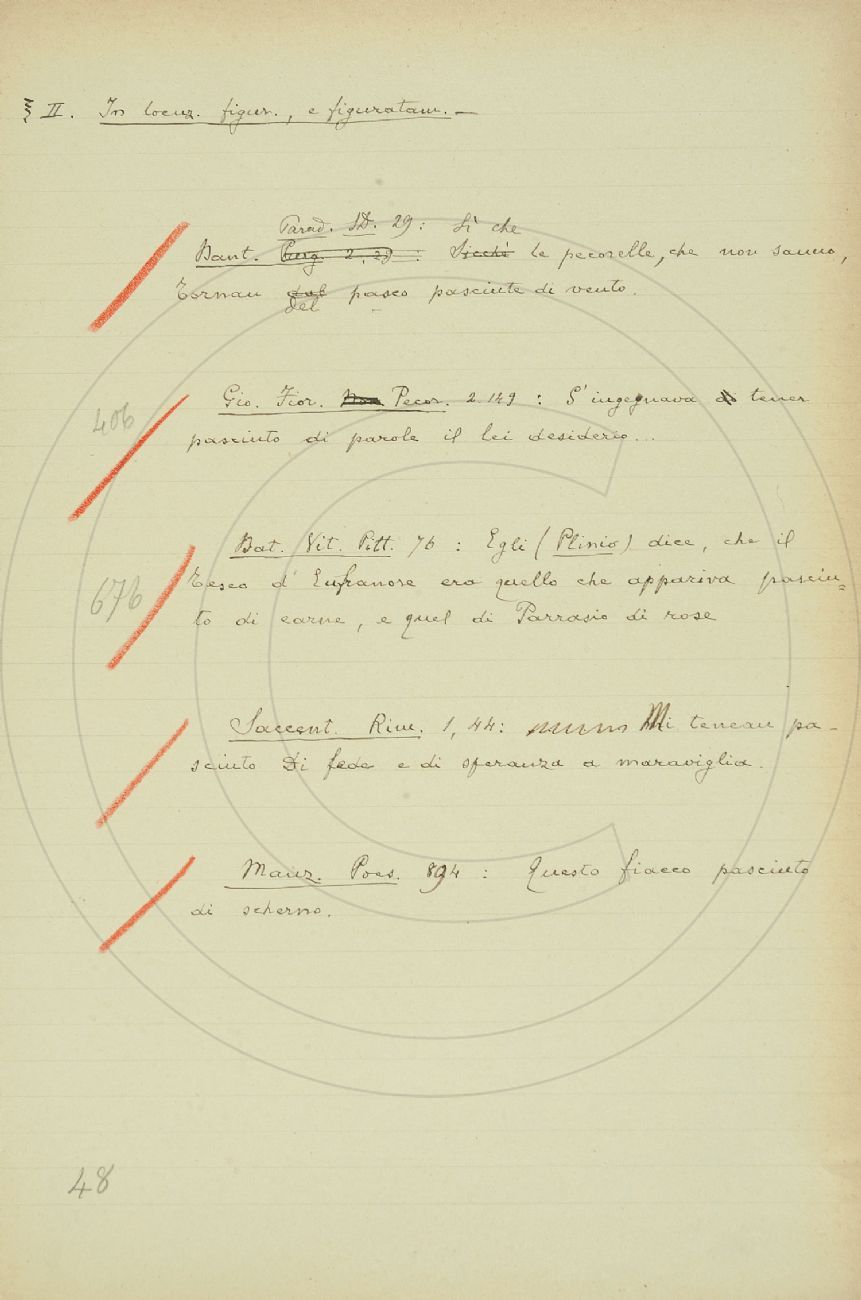 § II. In locuz. figur., e figuratam. —
Parad. ID. 29: Sì che
Dant. Purg. 2, 29 : Sicchè le pecorelle, che non sanno,
Tornan dal pasco pasciute di vento.
del
Gio. Fior. Pecor. 2. 149 : S'ingegnava di tener
406
pasciuto di parole il lei desiderio...
Dat. Vit. Pitt. 76 : Egli (Plinio) dice, che il
676
Teseo d'Eufranore era quello che appariva pasciu=
to di carne, e quel di Parrasio di rose
Saccent. Rim. 1, 44: Mi tenean pa-
sciuto Di fede e di speranza a maraviglia.
Manz. Poes. 894 : Questo fiacco pasciuto
di scherno.
48